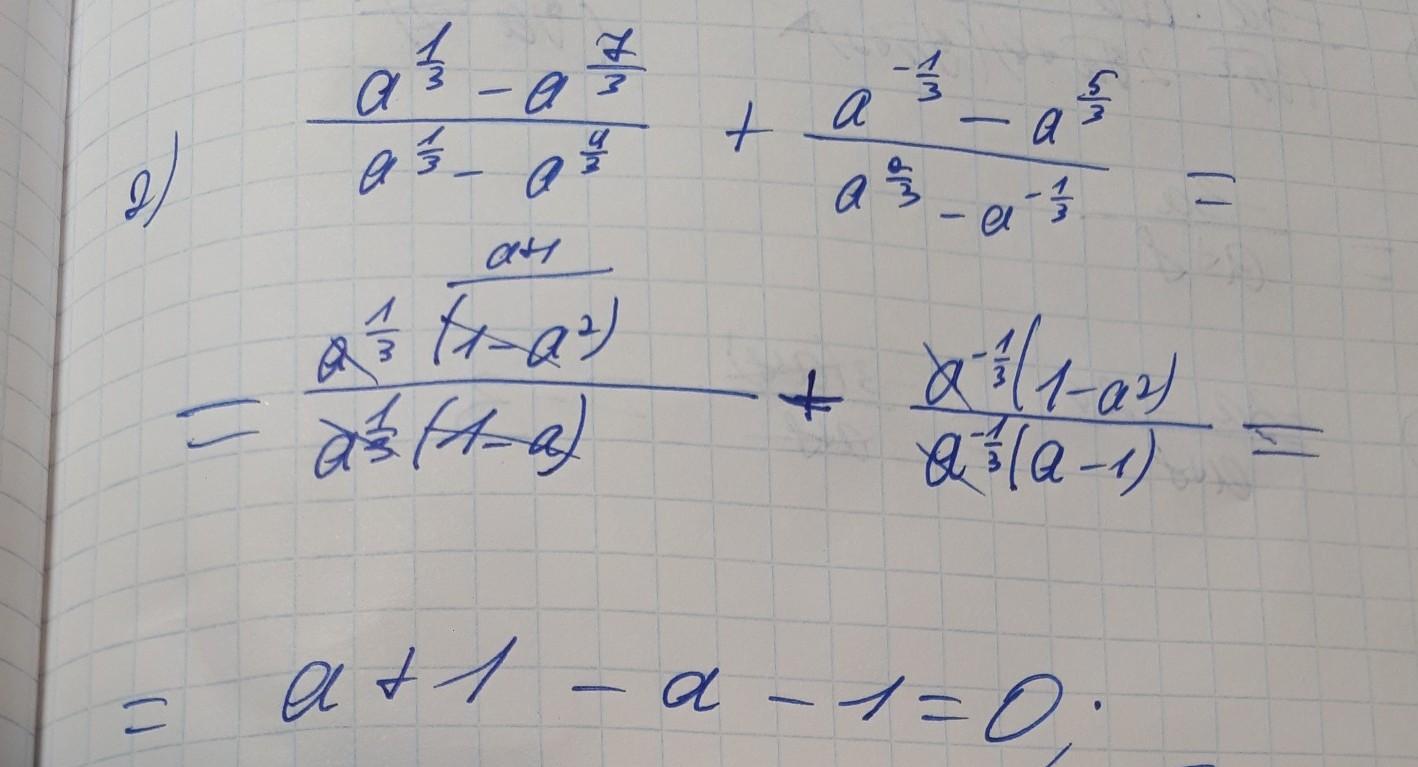 2) (a^(1/3) - a^(7/3))/(a^(1/3) - a^(4/3)) + (a^(-1/3) - a^(5/3))/(a^(2/3) - a^(-1/3)) =
a+1
= (a^(1/3) (1-a²))/(a^(1/3) (1-a)) + (a^(-1/3) (1-a²))/(a^(-1/3) (a-1)) =
= a + 1 - a - 1 = 0;